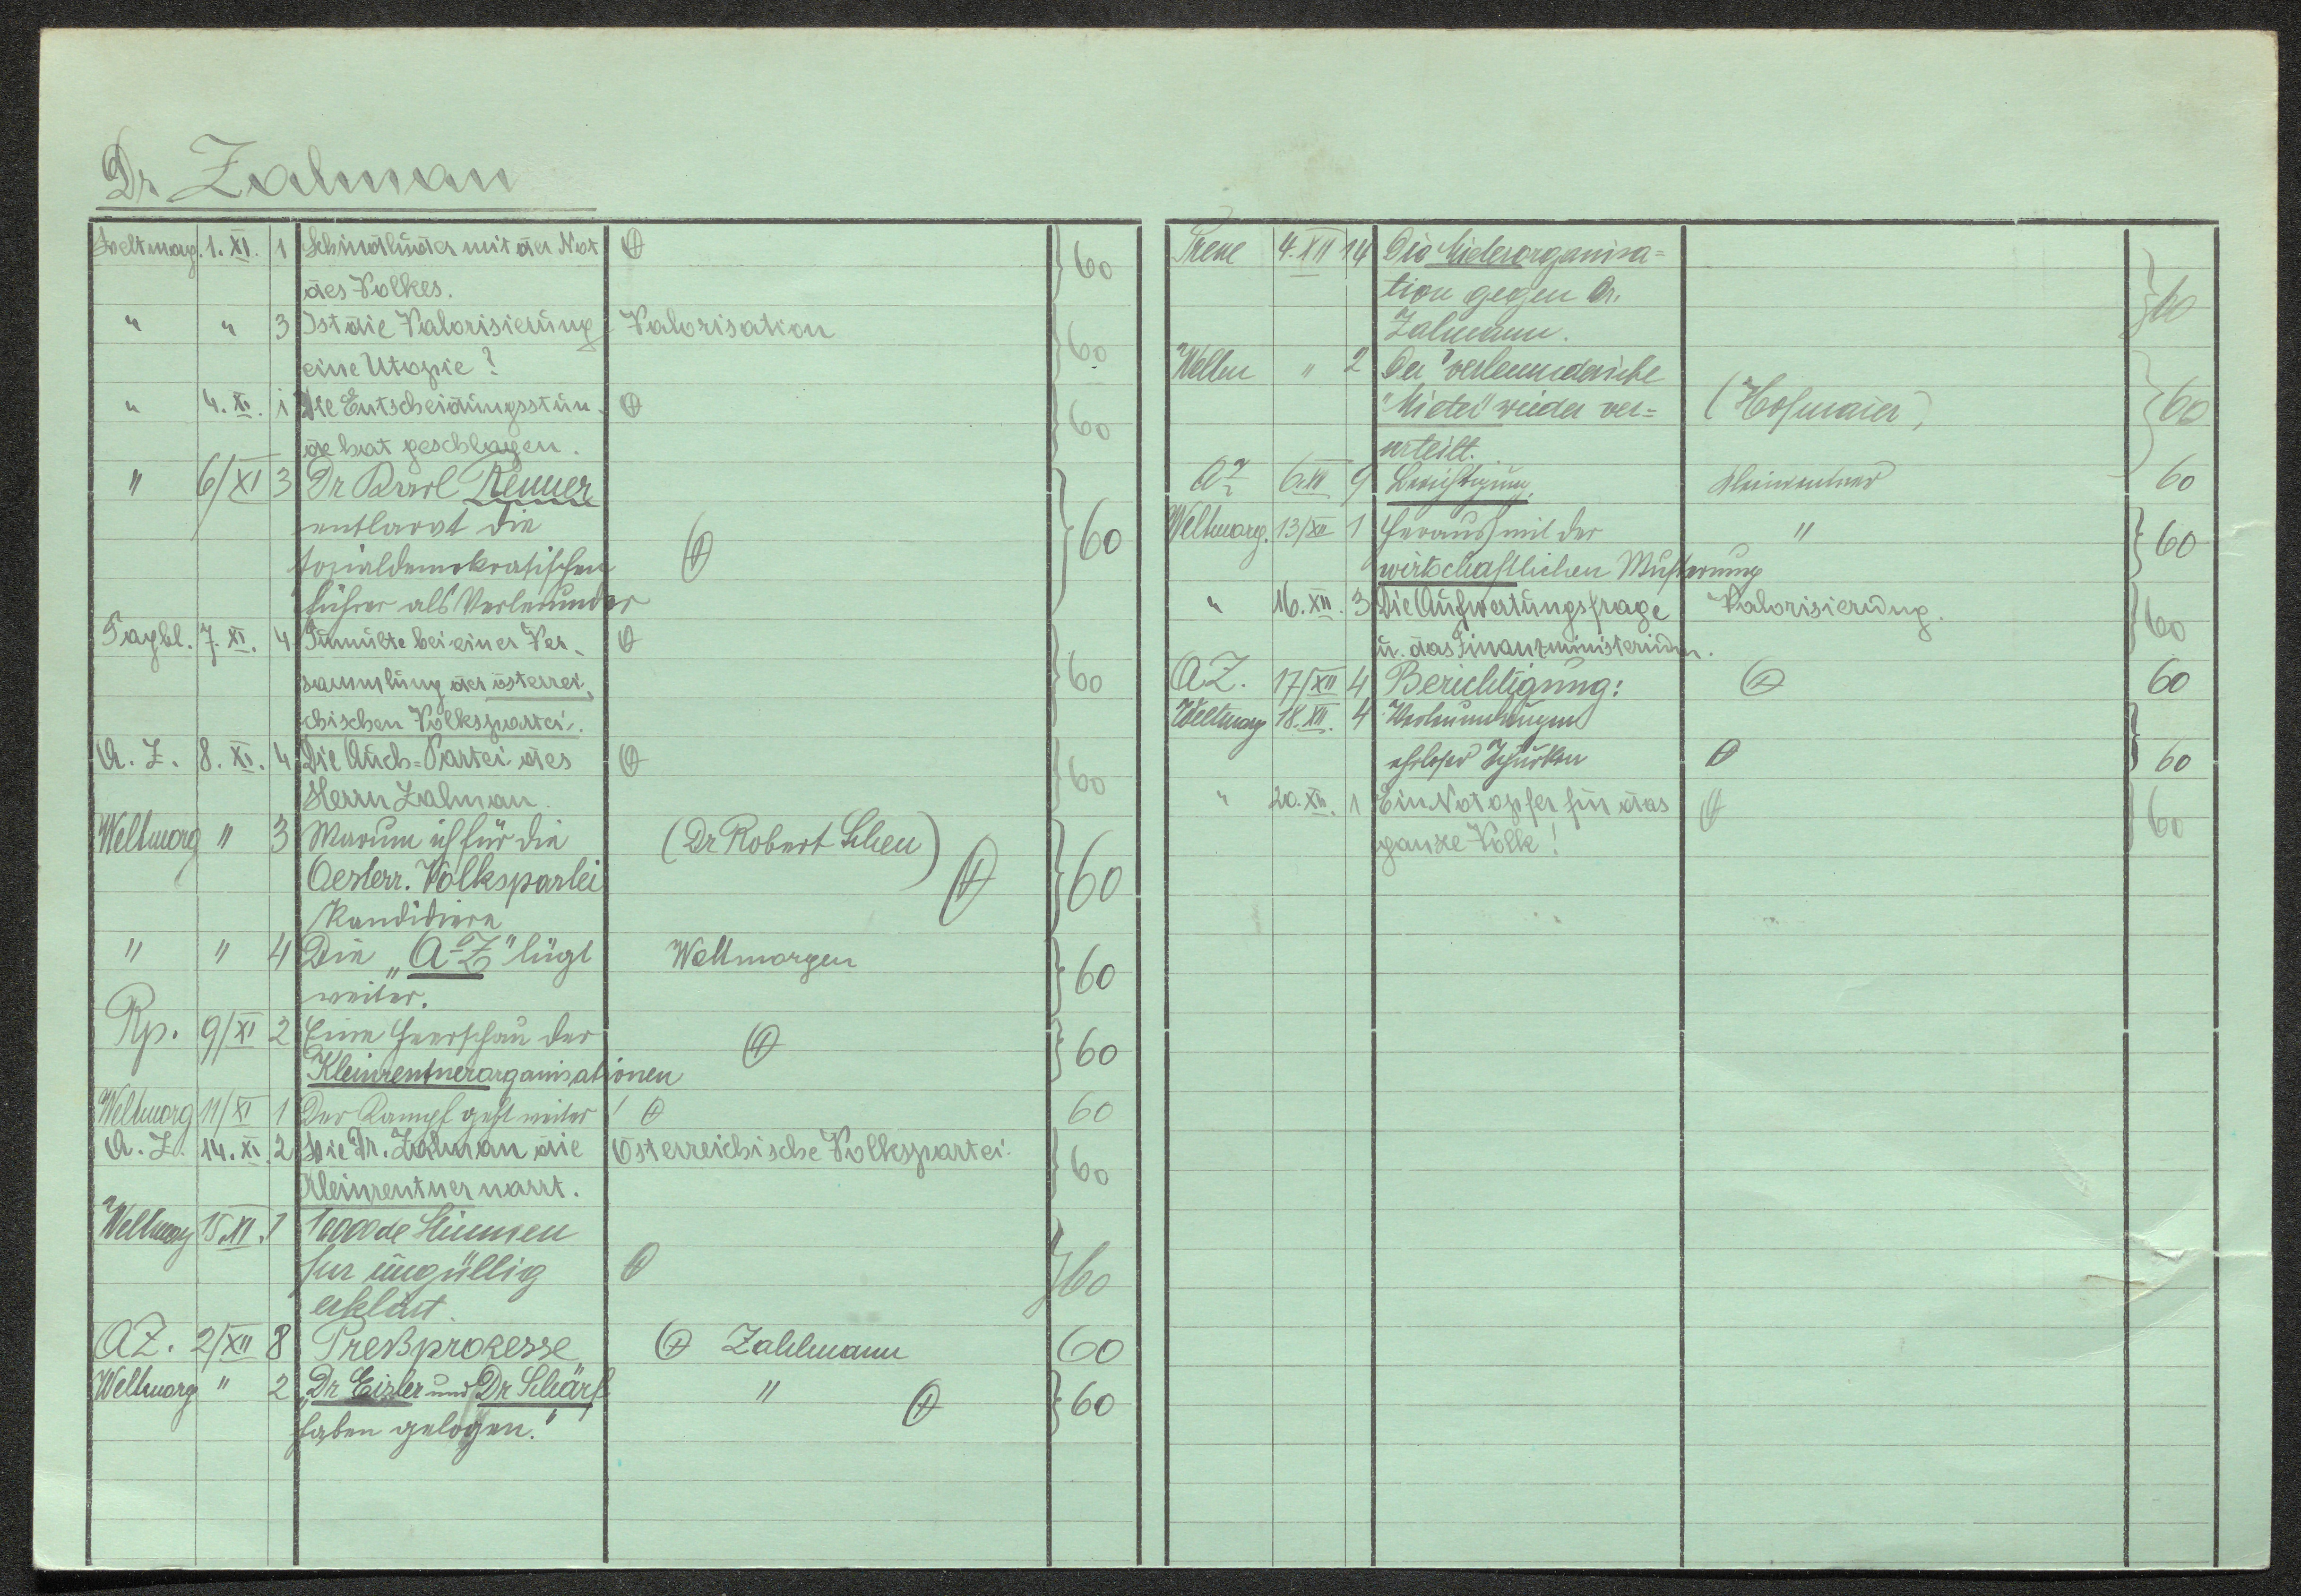 Dr Zalman
Weltmorg. 1. XI. 1 Schindluder mit der Not ⊕ 60
des Volkes.
" " 3 Ist die Valorisierung Valorisation 60
eine Utopie?
" 4. XI. 1 Die Entscheidungsstun- ⊕ 60
de hat geschlagen.
" 6/XI 3 Dr Karl Renner
entlarvt die
sozialdemokratischen ⊕ 60
Führer als Verleumder
Tagbl. 7. XI. 4 Tumulte bei einer Ver- ⊕
sammlung der österrei- 60
chischen Volkspartei.
A. Z. 8. XI. 4 Die Auch-Partei des ⊕ 60
Herrn Zalman.
Weltmorg " 3 Warum ich für die (Dr Robert Scheu)
Oesterr. Volkspartei ⊕ 60
kandidiere
" " 4 Die „A-Z" lügt Weltmorgen 60
weiter.
Rp. 9/XI 2 Eine Heerschau der ⊕ 60
Kleinrentnerorganisationen
Weltmorg 11/XI 1 Der Kampf geht weiter! ⊕ 60
A. Z. 14. XI. 2 Wie Dr. Zalman die Österreichische Volkspartei. 60
Kleinrentner narrt.
Weltmorg 15. XI. 1 Stimmen
für ungültig ⊕ 60
erklärt.
AZ. 2/XII 8 Preßprozesse ⊕ Zahlmann 60
Weltmorg " 2 „Dr Eisler und Dr Schärf " ⊕ 60
haben gelogen."
4. XII 14 Die Mieterorganisa=
tion gegen Dr. 60
Zalmann.
" 2 Der "verleumderische
"Mieter" wieder ver= (Hofmaier) 60
urteilt.
AZ 6. XII 9 Berichtigung. Kleinrentner 60
Weltmorg. 13/XII 1 Heraus mit der " 60
wirtschaftlichen Musterung
" 16. XII. 3 Die Aufwertungsfrage Valorisierung. 60
u. das Finanzministerium.
A.Z. 17/XII 4 Berichtigung: ⊕ 60
Weltmorg 18. XII. 4 Verleumdungen
ehrloser Schurken ⊕ 60
" 20. XII. 1 Ein Notopfer für das ⊕ 60
ganze Volk!